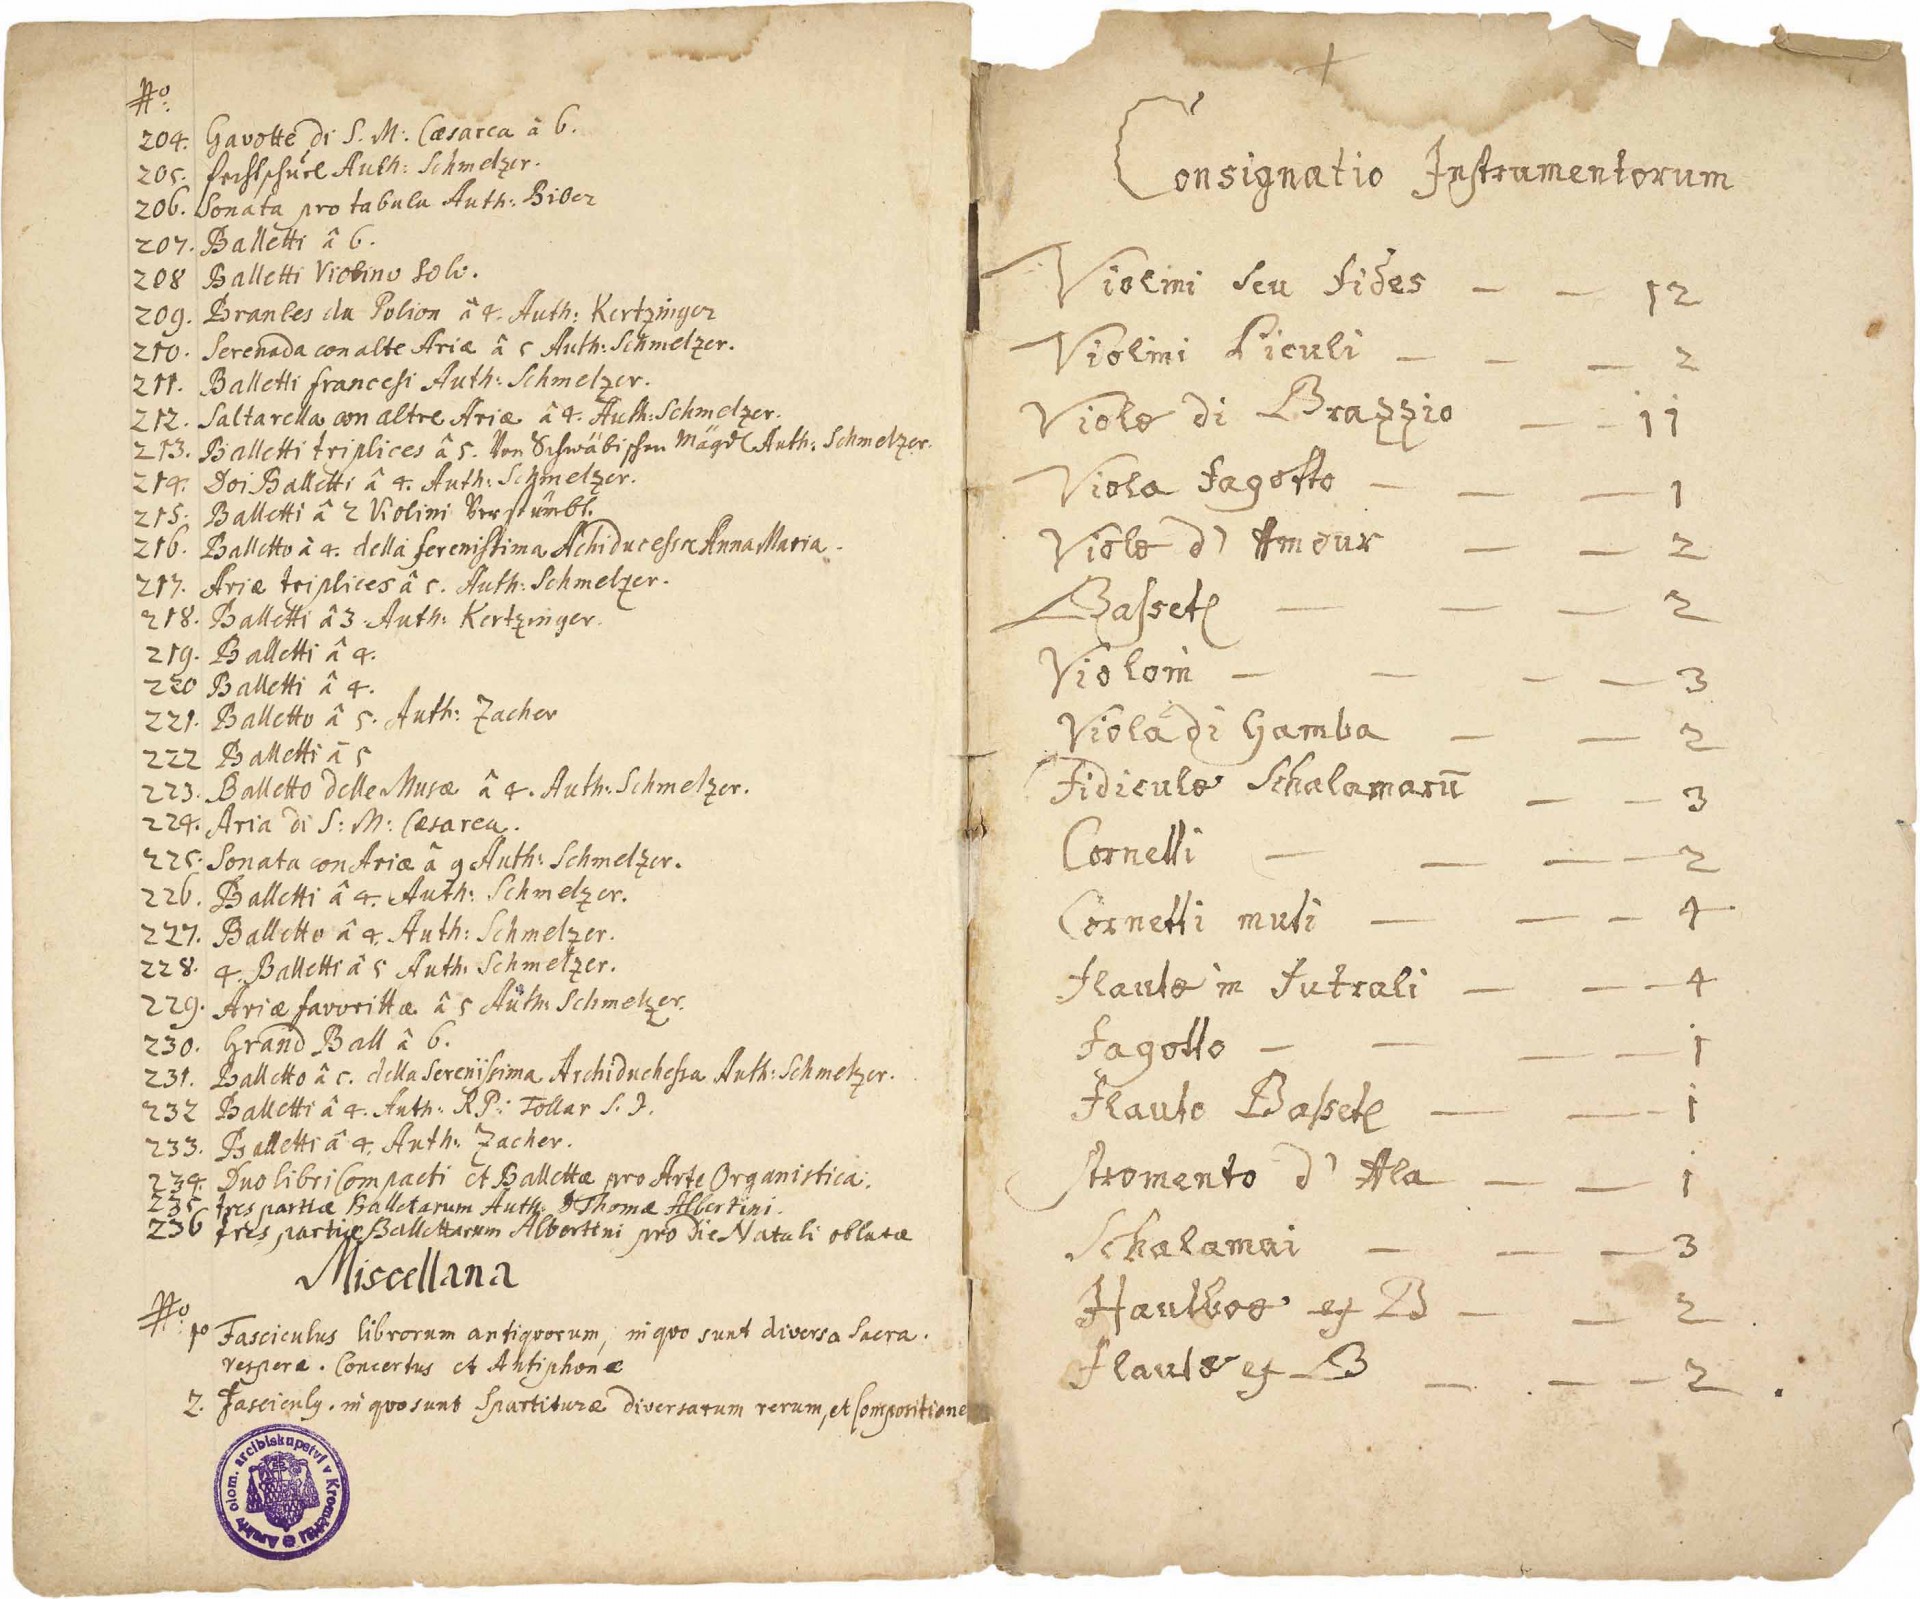 No:
204. Gavotte di S. M: Cæsarea â 6.
205. fechtschúel Auth: Schmelzer.
206. Sonata pro tabula Auth: Biber
207. Balletti â 6.
208 Balletti Violino Solo.
209. Branles du Polion â 4. Auth: Kertzinger
210. Serenada con alte Ariæ â 5 Auth: Schmelzer.
211. Balletti francesi Auth: Schmelzer.
212. Saltarella con altre Ariæ â 4. Auth: Schmelzer.
213. Balletti triplices â 5. Von Schwäbischen Mägdl Auth: Schmelzer.
214. Doi Balletti â 4. Auth: Schmelzer.
215. Balletti â 2 Violini
216. Balletto â 4. della serenissima Achiducessæ Anna Maria.
217. Ariæ triplices â 5. Auth: Schmelzer.
218. Balletti â 3. Auth: Kertzinger.
219. Balletti â 4.
220 Balletti â 4.
221. Balletto â 5. Auth: Zacher
222 Balletti â 5
223. Balletto delle Musæ â 4. Auth: Schmelzer.
224. Aria di S: M: Cæsarea.
225. Sonata con Ariæ â 9 Auth: Schmelzer.
226. Balletti â 4. Auth: Schmelzer.
227. Balletto â 4. Auth: Schmelzer.
228. 4. Balletti â 5 Auth. Schmelzer.
229. Ariæ favorittæ â 5 Auth: Schmelzer.
230. Grand Ball â 6.
231. Balletto â 5. della Serenissima Archiduchessa Auth: Schmelzer.
232 Balletti â 4. Auth: RP: Tollar S. J.
233. Balletti â 4. Auth: Zacher.
234. Duo libri Compacti et Ballettæ pro Arte Organistica.
235 tres partiæ Balletarum Auth. D Thomæ Albertini.
236 tres partiæ Ballettarum Albertini pro die Natali oblatæ
Miscellana
No:
1o Fasciculus librorum antiquorum, in quo sunt diversa Sacra.
vesperæ. Concertus et Antiphonæ
2. Fasciculg. in quo sunt Spartituræ diversarum rerum, et Compositionem
olom. arcibiskupství v Kroměříži Archiv
Consignatio Instrumentorum
Violini seu fides — — 12
Violini Piculi — — — 2
Violæ di Brazzio — — 11
Viola Fagotto — — — 1
Violæ d' Amour — — 2
Bassetl — — — 2
Violoni — — — — 3
Viola di Gamba — — 2
Fidiculæ Schalamarū — — 3
Cornetti — — — — 2
Cornetti muti — — — 4
Flautæ in Futrali — — — 4
Fagotto — — — — 1
Flauto Bassetl — — 1
Stromento d' Ala — — 1
Schalamai — — — 3
Hautboæ ex B — — 2
Flautæ ex B — — — 2.